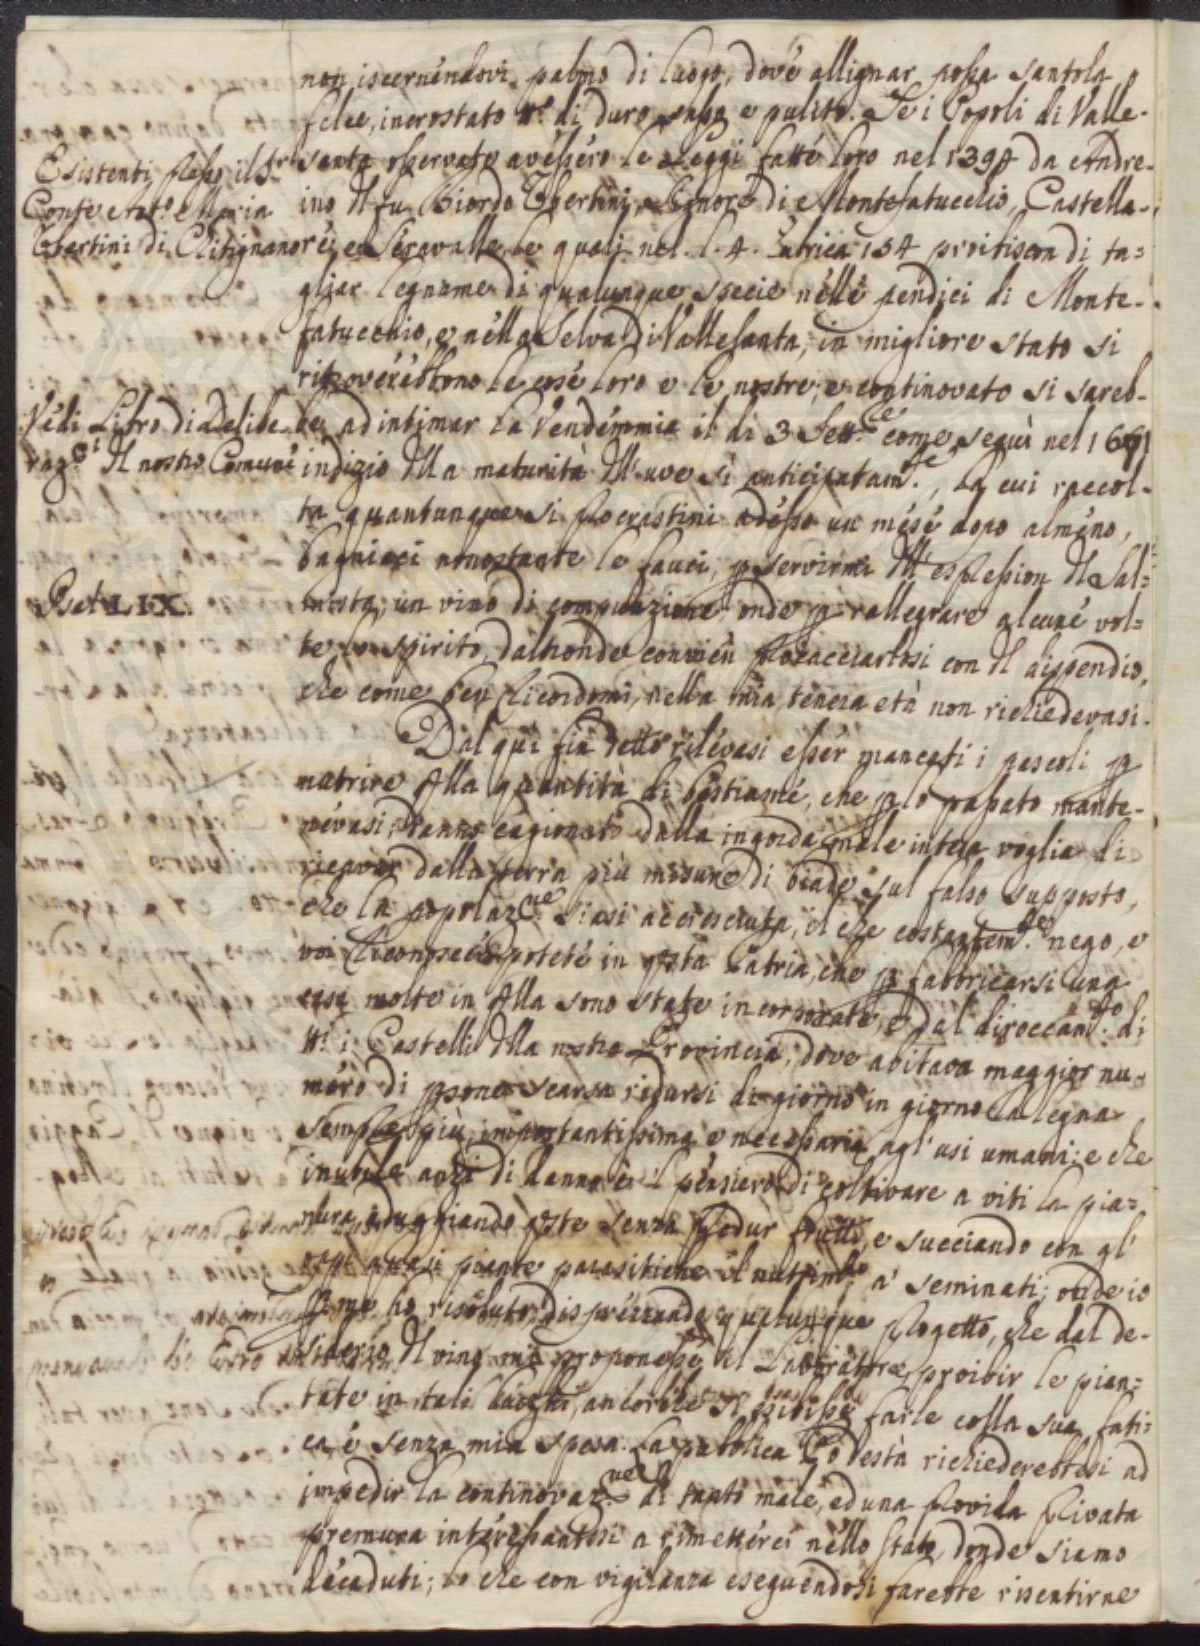 non iscernéndovi palmo di luogo, dové allignar possa santola, o
felce, incrostato tt.o di duro sasso e pulito. Se i Popoli di Valle-
santa osservate avéssero le Leggi fatte loro nel 1394 da Andre-
Esistenti presso il Sr.
Conte Ant.o Maria
Ubertini di Chitignano
ino del fu Biordo Ubertini Signore di Montefatucchio, Castella-
re, e Seravalle, le quali nel l. 4. Rubrica 134 proibiscon di ta=
gliar legname di qualunque specie nelle pendici di Monte-
fatucchio, e nella Selva di Vallesanta, in migliore stato si
ritroverébbono le cose loro e le nostre; e continovato si sareb-
Védi Libro di Delibe-
raz.ni del nostro Comune
be ad intimar la Vendémmia il di 3 Sett.re come seguì nel 1661
indizio della maturità dell'uve sì anticipatam.te, la cui raccol-
ta quantunque si procrastini adésso un mésé dopo alméno,
bagniaci nonostante le fauci, p servirmi dell'espression del Sal=
Psal. LIX.
mista, un vino di compunzione; onde p rallegrare alcuné vol=
te lo spirito, daltronde convién procacciarlosi con del dispendio,
che come ben ricordomi, nella mia tenera età non richiedevasi.
Dal qui fin detto rilévasi esser mancati i pascoli p
nutrire quella quantità di béstiamé, che p lo passato mante-
névasi; danno cagionato dalla ingorda male intesa voglia di
ricavar dalla terra più misure di biade sul falso supposto,
che la popolaz.ne siasi accresciuta, il che costantem.te nego, e
voi riconoscér poteté in questa Patria, che p fabbricarsi una
casa molte in quella sono state incorporate, e dal diroccam.to di
tt.i i Castelli della nostra Provincia, dove abitava maggior nu=
méro di psone: scarsa ridursi di giorno in giorno la legna
sempre più importantissima e necessaria agl'usi umani: e che
inutile anzi di danno è 'l pensiero di coltivare a viti la pia=
nura, aduggiando queste senza produr frutto, e succiando con gl'
arbori quasi piante parasitiche il nutrim.to a' seminati; onde io
p me ho risoluto, disprézzando qualunque progetto, che dal de-
siderio del vino mi proponesse il Lavoratore, proibir le pian=
tate in tali luoghi, ancorché si esibisse farle colla sua fati=
ca e senza mia spesa. La pubblica Podestà richiederebbesi ad
impedir la continovaz.ne di tanto male, ed una provida privata
premura intéressantesi a riméttérci néllo stato, donde siamo
décaduti; lo che con vigilanza eseguéndosi farebbe risentirne